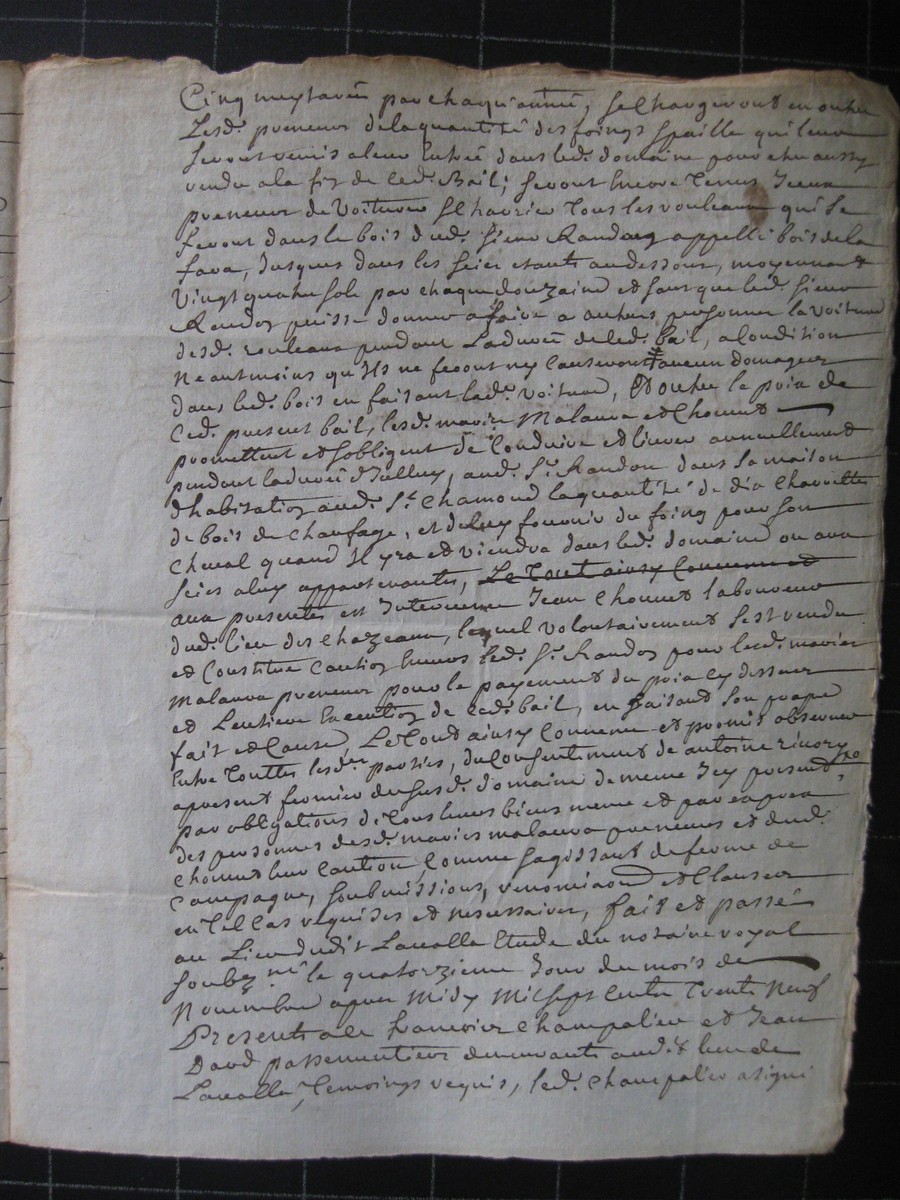 Cinq mestaren par chaqu'année, se Chargeront en outre
Lesd. preneurs de la quantité des foings & paille qui leur
seront remis a leur Entrée dans led. domaine pour etre aussy
rendu a la fin de Ced. Bail; seront Encore Tenus Iceux
preneurs de Voiturer & Charrier Tous les rouleaux qui se
feront dans le bois dud. sieur Randon appellé bois de la
fara, Jusques dans les scies etants au dessous, moyennant
Vingt quatre sols par chaque douzaine et sans que led. sieur
Randon puisse donner a faire a autres personnes la voiture
desd. rouleaux pendant La durée de led. bail, a Condition
Neantmoins qu'Ils ne feront ny Causeront aucun domages
dans led. bois en faisant lad. voiture, Et outre le prix de
Ced. present bail, lesd. mariés Malaura et Chomet
promettent et sobligent de Conduire et livrer annuellement
pendant la durée d'Icelluy, aud. Sr. Randon dans sa maison
d'habitation aud. St. Chamond la quantité de dix Charrettes
de bois de chaufage, et de luy fournir du foing pour son
cheval quand Il yra et viendra dans led. domaine ou aux
scies a luy appartenantes, Le Tout ainsy Convenu et
aux presentes est Intervenu Jean Chomet laboureur
dud. lieu des Chazeaux, lequel volontairement s'est rendu
et Constitué Caution Envers led. Sr. Randon pour lesd. mariés
Malaura preneurs pour le payement du prix cy dessus
et L'entiere Execution de ced. bail, en faisant son propre
fait et Cause, Le Tout ainsy Convenu et promis observer
Entre Touttes lesd. parties, du Consentement de antoine
apresent fermier du susd. domaine de meme Icy present
par obligations de Tous leurs biens meme et par exprés
des personnes desd. mariés malaura preneurs et dud.
Chomet leur Caution, Comme sagissant de ferme de
Campagne, soubmissions, renonciaons et Clauses
en Tel Cas requises et necessaires, fait et passé
au Lieu dudit Lavalla Etude du notaire royal
soubzné. le quatorzieme Jour du mois de
Novembre apres Midy Mil sept Cents Trente Neuf
Presents a ce francois Champalier et Jean
passementiers demeurants aud.t lieu de
Lavalla, Temoings requis, led. Champalier a signé